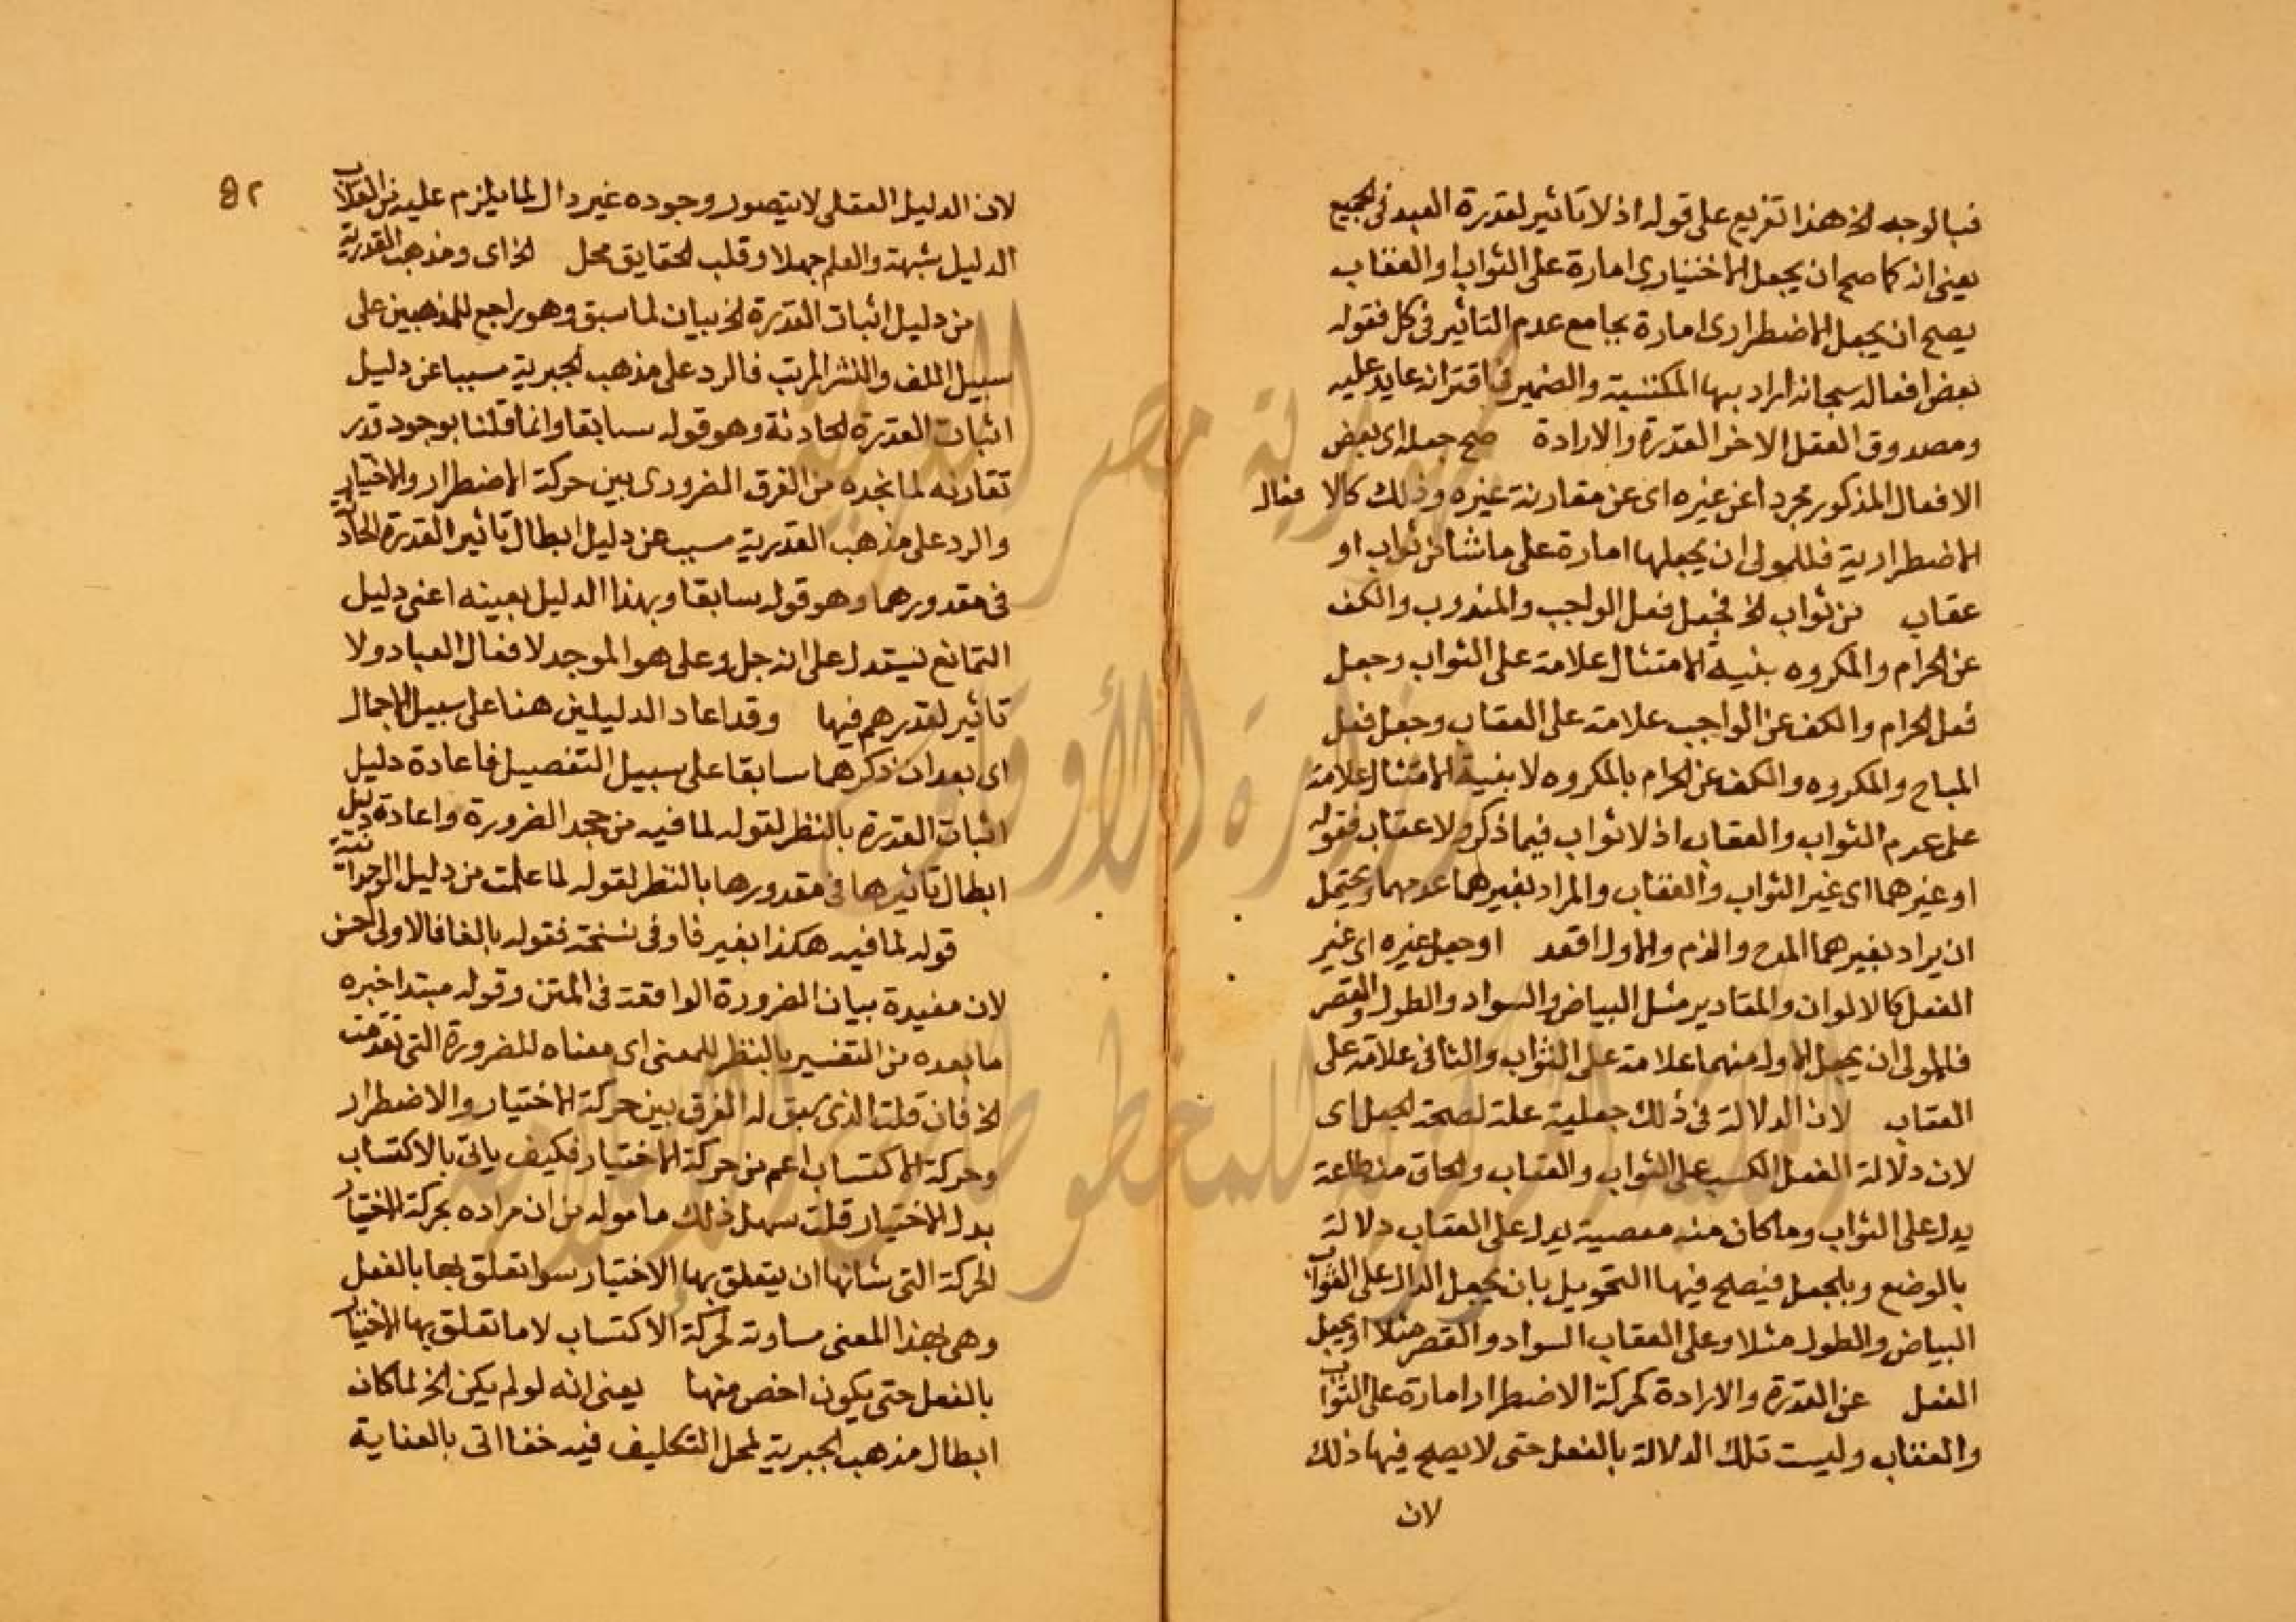 فبالوجه الخ هذا تفريع على قوله اذ لا تاثير لقدرة العبد فى الجميع
يعنى انه كما صح ان يجعل الاختيارى امارة على الثواب او العقاب
يصح ان يجعل الاضطرارى امارة بجامع عدم التاثير فى كل فقوله
بعض افعاله سبحانه اراد بها المكتسبة والضمير فى اقترانه عايد عليه
ومصدوق العقل الاخر القدرة والارادة صح جعله اى بعض
الافعال المذكور مجردا عن غيره اى عن مقارنة غيره وذلك كالافعال
الاضطرارية فللمولى ان يجعلها امارة على ما شا من ثواب او
عقاب من ثواب الخ فجعل فعل الواجب والمندوب والكف
عن الحرام والمكروه بنية الامتثال علامة على الثواب وجعل
فعل الحرام والكف عن الواجب علامة على العقاب وجعل فعل
المباح والمكروه والكف عن الحرام بالمكروه لا بنية الامتثال علامة
على عدم الثواب والعقاب اذ لا ثواب فيما ذكر ولا عقاب فقوله
او غيرهما اى غير الثواب والعقاب والمراد بغيرهما عدمهما ويحتمل
ان يراد بغيرهما المدح والذم والاول اقعد او جعل غيره اى غير
الفعل كالالوان والمقادير مثل البياض والسواد والطول والقصر
فللمولى ان يجعل الاول منهما علامة على الثواب والثانى علامة على
العقاب لان الدلالة فى ذلك جعلية علة لصحة الجعل اى
لان دلالة الفعل الكسب على الثواب والعقاب والحاق منه طاعة
يدل على الثواب وما كان منه معصية يدل على العقاب دلالة
بالوضع وبالجعل فيصلح فيها التحويل بان يجعل الدال على الثواب
البياض والطول مثلا وعلى العقاب السواد والقصر مثلا او يجعل
الفعل عن القدرة والارادة كحركة الاضطرار امارة على الثواب
والعقاب وليست تلك الدلالة بالفعل حتى لا يصلح فيها ذلك
لان
٥٢
لان الدليل العقلى لا يتصور وجوده غير دال لما يلزم عليه من انقلاب
الدليل شبهة والعلم جهلا وقلب الحقايق محل الخ اى ومذهب القدرية
من دليل اثبات القدرة الخ بيان لما سبق وهو راجع للمذهبين على
سبيل اللف والنشر المرتب فالرد على مذهب الجبرية مسببا عن دليل
اثبات القدرة الحادثة وهو قوله سابقا وانما قلنا بوجود قدر
تقارنه لما نجده من الفرق الضرورى بين حركة الاضطرار والاختيار
والرد على مذهب القدرية مسبب عن دليل ابطال تاثير القدرة الحادثة
فى مقدورهما وهو قوله سابقا وبهذا الدليل بعينه اعنى دليل
التمانع يستدل على انه جل وعلى هو الموجد لافعال العباد ولا
تاثير لقدرهم فيها وقد اعاد الدليلين هنا على سبيل الاجمال
اى بعد ان ذكرهما سابقا على سبيل التفصيل فاعادة دليل
اثبات القدرة بالنظر لقوله لما فيه من جحد الضرورة واعادة دليل
ابطال تاثيرها فى مقدورها بالنظر لقوله لما علمت من دليل الوحدانية
قوله لما فيه هكذا بغير فا وفى نسخة فقوله بالفا فالاولى احسن
لان مفيدة بيان الضرورة الواقعة فى المتن وقوله مبتدا خبره
ما بعده من التفسير بالنظر للمعنى اى معناه للضرورة التى تقدمت
الخ فان قلت الذى سبق له الفرق بين حركة الاختيار والاضطرار
وحركة الاكتساب اعم من حركة الاختيار فكيف ياتى بالاكتساب
بدل الاختيار قلت سهل ذلك ما مر له من ان مراده بحركة الاختيار
الحركة التى شانها ان يتعلق بها الاختيار سوا تعلق بها بالفعل
وهى بهذا المعنى مساوية لحركة الاكتساب لا ما تعلق بها الاختيار
بالفعل حتى يكون اخص منها يعنى انه لو لم يكن الخ لما كان
ابطال مذهب الجبرية لمحل التكليف فيه خفا اتى بالعناية
جمهورية مصر العربية
وزارة الأوقاف
المكتبة المركزية للمخطوطات الإسلامية